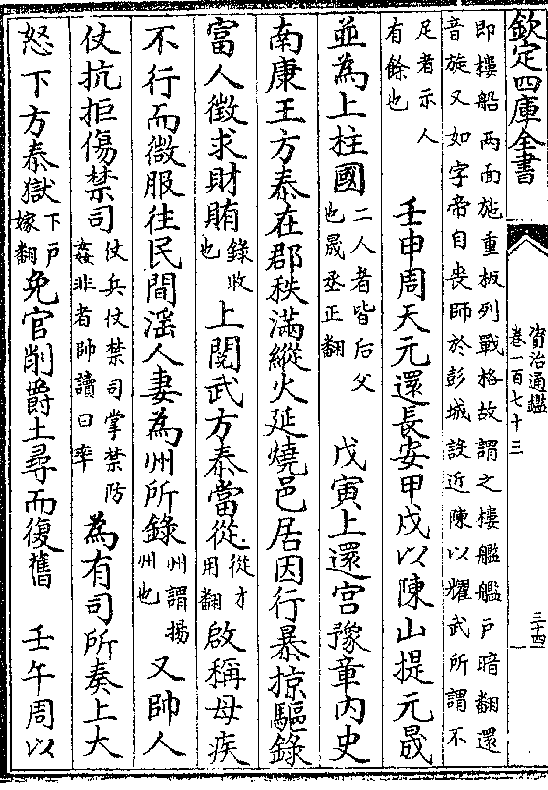 欽定四庫全書
資治通鑑
卷一百七十三
三十四
即樓船兩面施重板列戰格故謂之樓艦艦戶暗翻還
音旋又如字帝自喪師於彭城設近陳以耀武所謂不
足者示人
有餘也
壬申周天元還長安甲戌以陳山提元晟
並為上柱國
二人者皆后父
也晟丞正翻
戊寅上還宮豫章內史
南康王方泰在郡秩滿縱火延燒邑居因行暴掠驅錄
富人徵求財賄
錄收
也
上閱武方泰當從
從才
用翻
啟稱母疾
不行而微服往民間淫人妻為州所錄
州謂揚
州也
又帥人
仗抗拒傷禁司
仗兵仗禁司掌禁防
姦非者帥讀曰率
為有司所奏上大
怒下方泰獄
下戶
嫁翻
免官削爵土尋而復舊
壬午周以